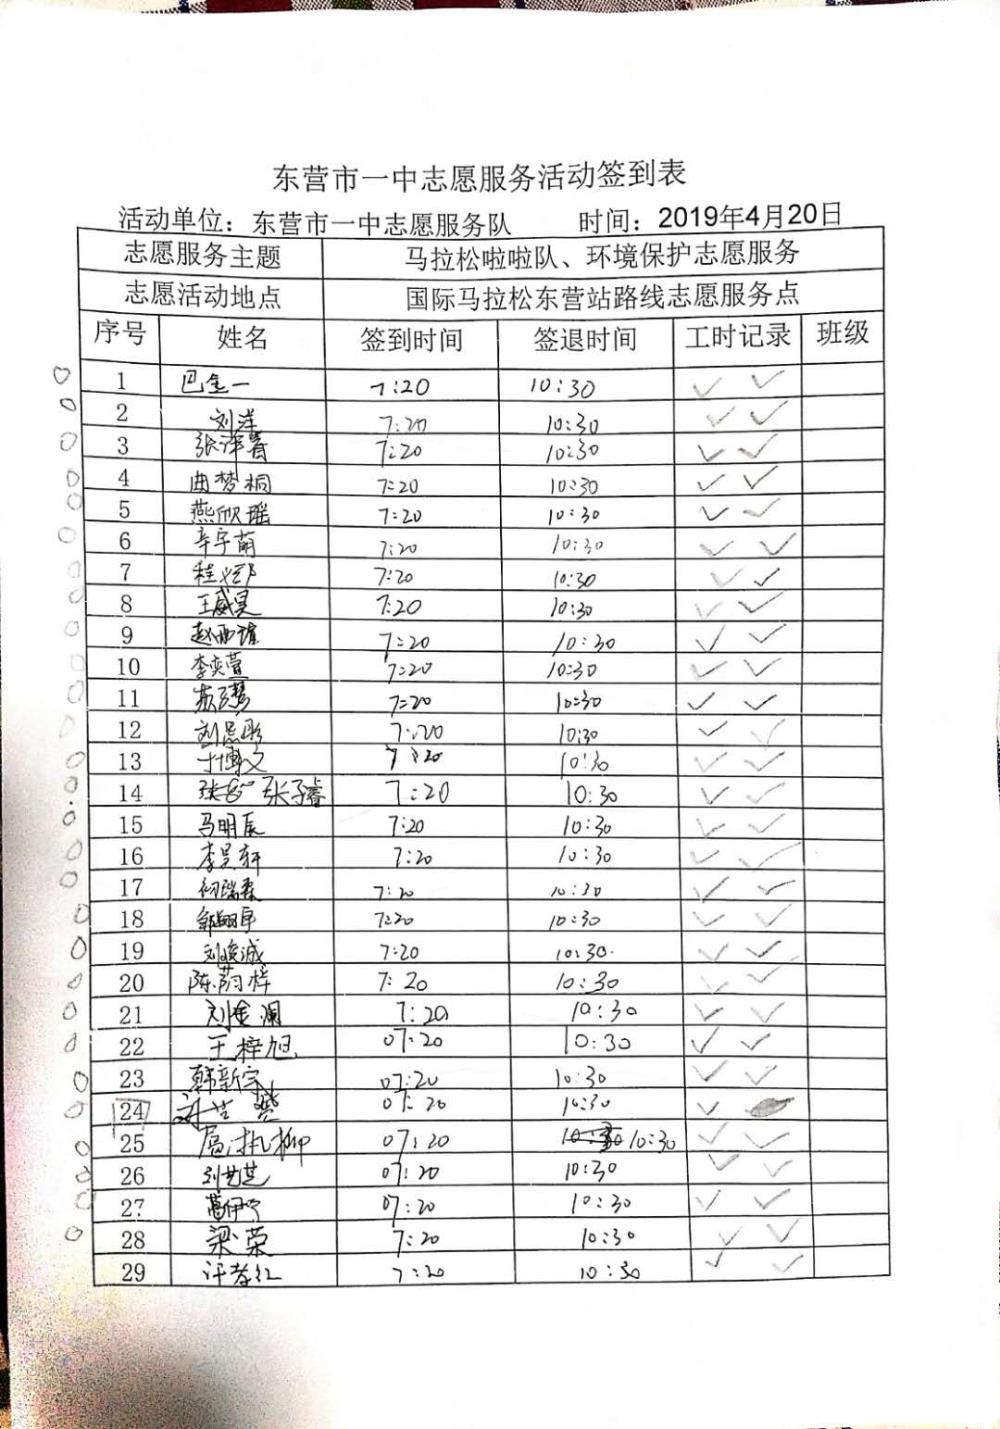 东营市一中志愿服务活动签到表
活动单位：东营市一中志愿服务队 时间：2019年4月20日
志愿服务主题 马拉松啦啦队、环境保护志愿服务
志愿活动地点 国际马拉松东营站路线志愿服务点
序号 姓名 签到时间 签退时间 工时记录 班级
1 巴金一 7:20 10:30 ✓ ✓
2 刘洋 7:20 10:30 ✓ ✓
3 张泽 7:20 10:30 ✓ ✓
4 曲梦桐 7:20 10:30 ✓ ✓
5 燕欣瑶 7:20 10:30 ✓ ✓
6 辛宇萌 7:20 10:30 ✓ ✓
7 程 7:20 10:30 ✓ ✓
8 王威昊 7:20 10:30 ✓ ✓
9 赵雨 7:20 10:30 ✓ ✓
10 李奕萱 7:20 10:30 ✓ ✓
11 7:20 10:30 ✓ ✓
12 刘昱彤 7:20 10:30 ✓ ✓
13 于博文 7:20 10:30 ✓ ✓
14 张子睿 7:20 10:30 ✓ ✓
15 马明辰 7:20 10:30 ✓ ✓
16 李昊轩 7:20 10:30 ✓ ✓
17 瑞森 7:20 10:30 ✓ ✓
18 7:20 10:30 ✓ ✓
19 刘俊诚 7:20 10:30 ✓ ✓
20 陈 梓 7:20 10:30 ✓ ✓
21 刘金澜 7:20 10:30 ✓ ✓
22 王梓旭 07:20 10:30 ✓ ✓
23 韩新宇 07:20 10:30 ✓ ✓
24 07:20 10:30 ✓
25 07:20 10:30 10:30 ✓ ✓
26 刘艺芝 07:20 10:30 ✓ ✓
27 葛伊宁 07:20 10:30 ✓ ✓
28 梁荣 7:20 10:30 ✓ ✓
29 许孝红 7:20 10:30 ✓ ✓